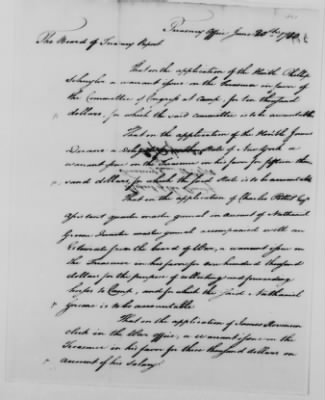 Treasury Office June 20th 1780
The Board of Treasury Report
That on the application of the Honble Phillip
Schuyler a warrant issue on the Treasurer in favor of
the Committee of Congress at Camp, for ten thousand
dollars, for which the said committee is to be accountable
That on the application of the Honble James
Duane a State of New York a
warrant issue on the Treasurer in his favor for fifteen thou
sand dollars for which the said State is to be accountable
That on the application of Charles Pettit Esqr
Assistant quarter master general in account of Nathaniel
Greene Quarter master general accompanied with an
Estimate from the board of War, a warrant issue on
the Treasurer in his favor for one hundred thousand
dollars for the purpose of collecting and forwarding
horses to Camp, and for which the said Nathaniel
Greene is to be accountable
That on the application of James
clerk in the War office, a warrant issue on the
Treasurer in his favor for three thousand dollars on
account of his Salary